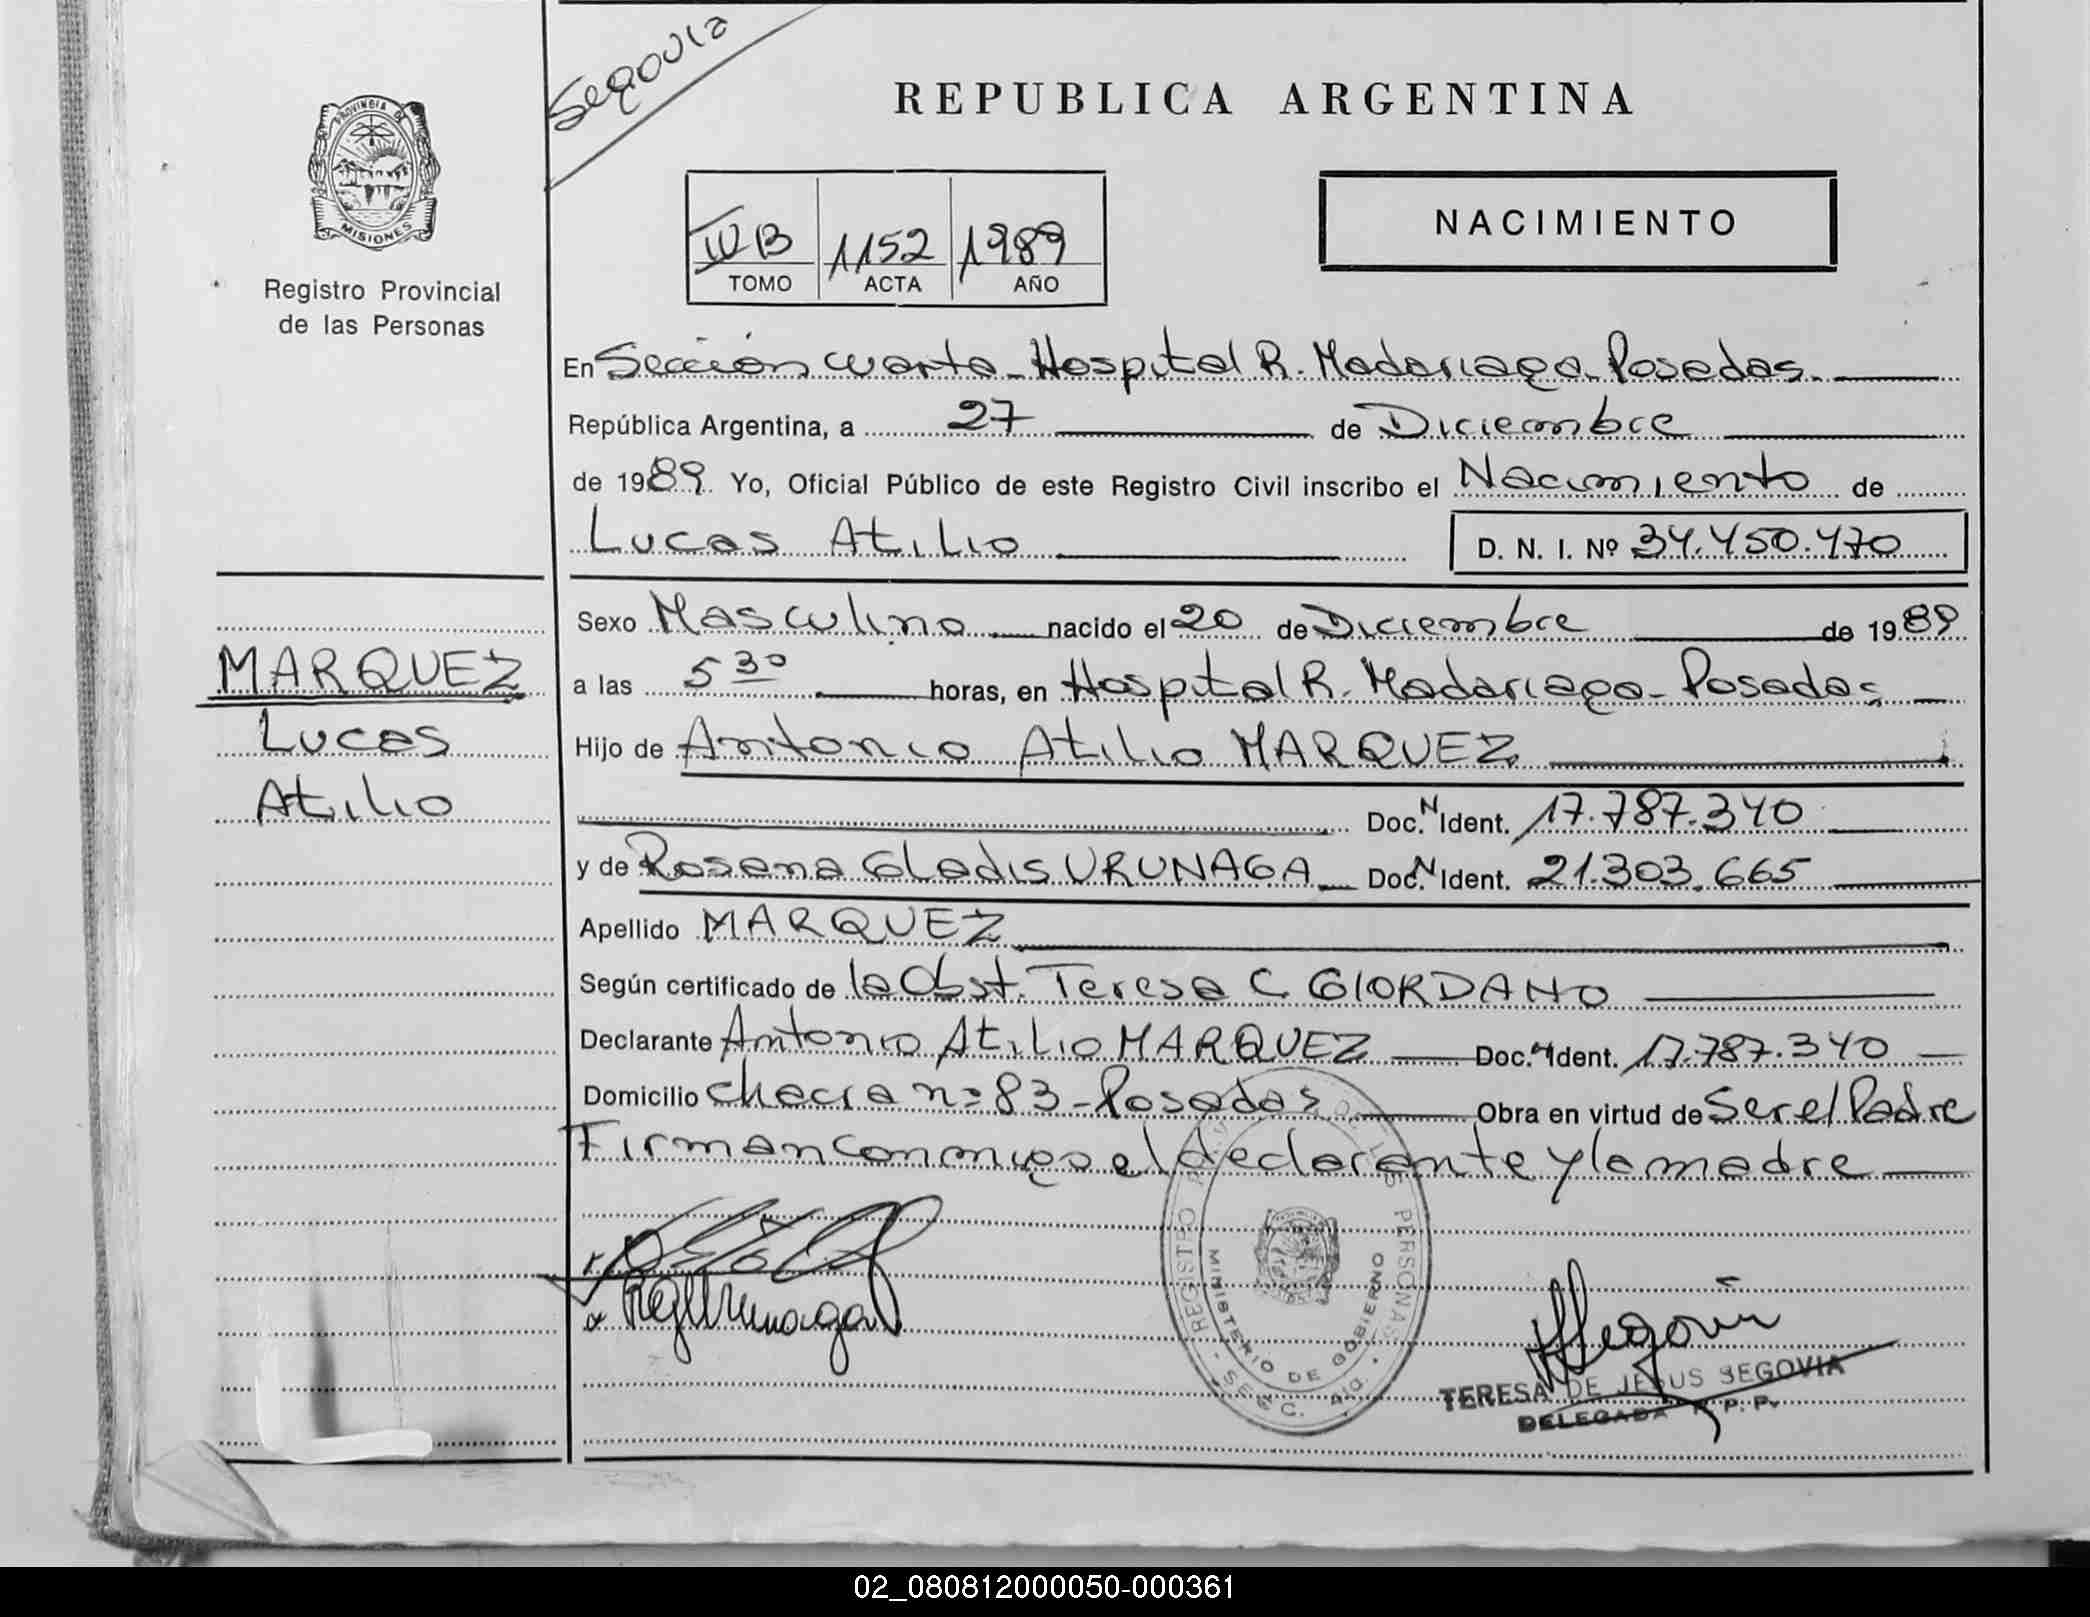 Segovia
REPUBLICA ARGENTINA
PROVINCIA DE
MISIONES
Registro Provincial
de las Personas
IV B 1152 1989
TOMO ACTA AÑO
NACIMIENTO
En Sección Cuarta - Hospital R. Madariaga. Posadas.
República Argentina, a 27 de Diciembre
de 1989. Yo, Oficial Público de este Registro Civil inscribo el Nacimiento de
Lucas Atilio D. N. I. Nº 34.450.470
Sexo Masculino nacido el 20 de Diciembre de 1989
MARQUEZ
a las 5 30 horas, en Hospital R. Madariaga - Posadas
Lucas
Hijo de Antonio Atilio MARQUEZ
Atilio
Doc. N Ident. 17.787.340
y de Rosana Gladis URUNAGA Doc. N Ident. 21.303.665
Apellido MARQUEZ
Según certificado de la Obst. Teresa C. GIORDANO
Declarante Antonio Atilio MARQUEZ Doc. N Ident. 17.787.340
Domicilio Chacra nº 83 - Posadas Obra en virtud de Ser el Padre
Firman conmigo el declarante y la madre
REGISTRO DE LAS PERSONAS
MINISTERIO DE GOBIERNO
SECC. 4ta.
RgUrunaga
Segovia
TERESA DE JESUS SEGOVIA
DELEGADA R. P. P.
02_080812000050-000361